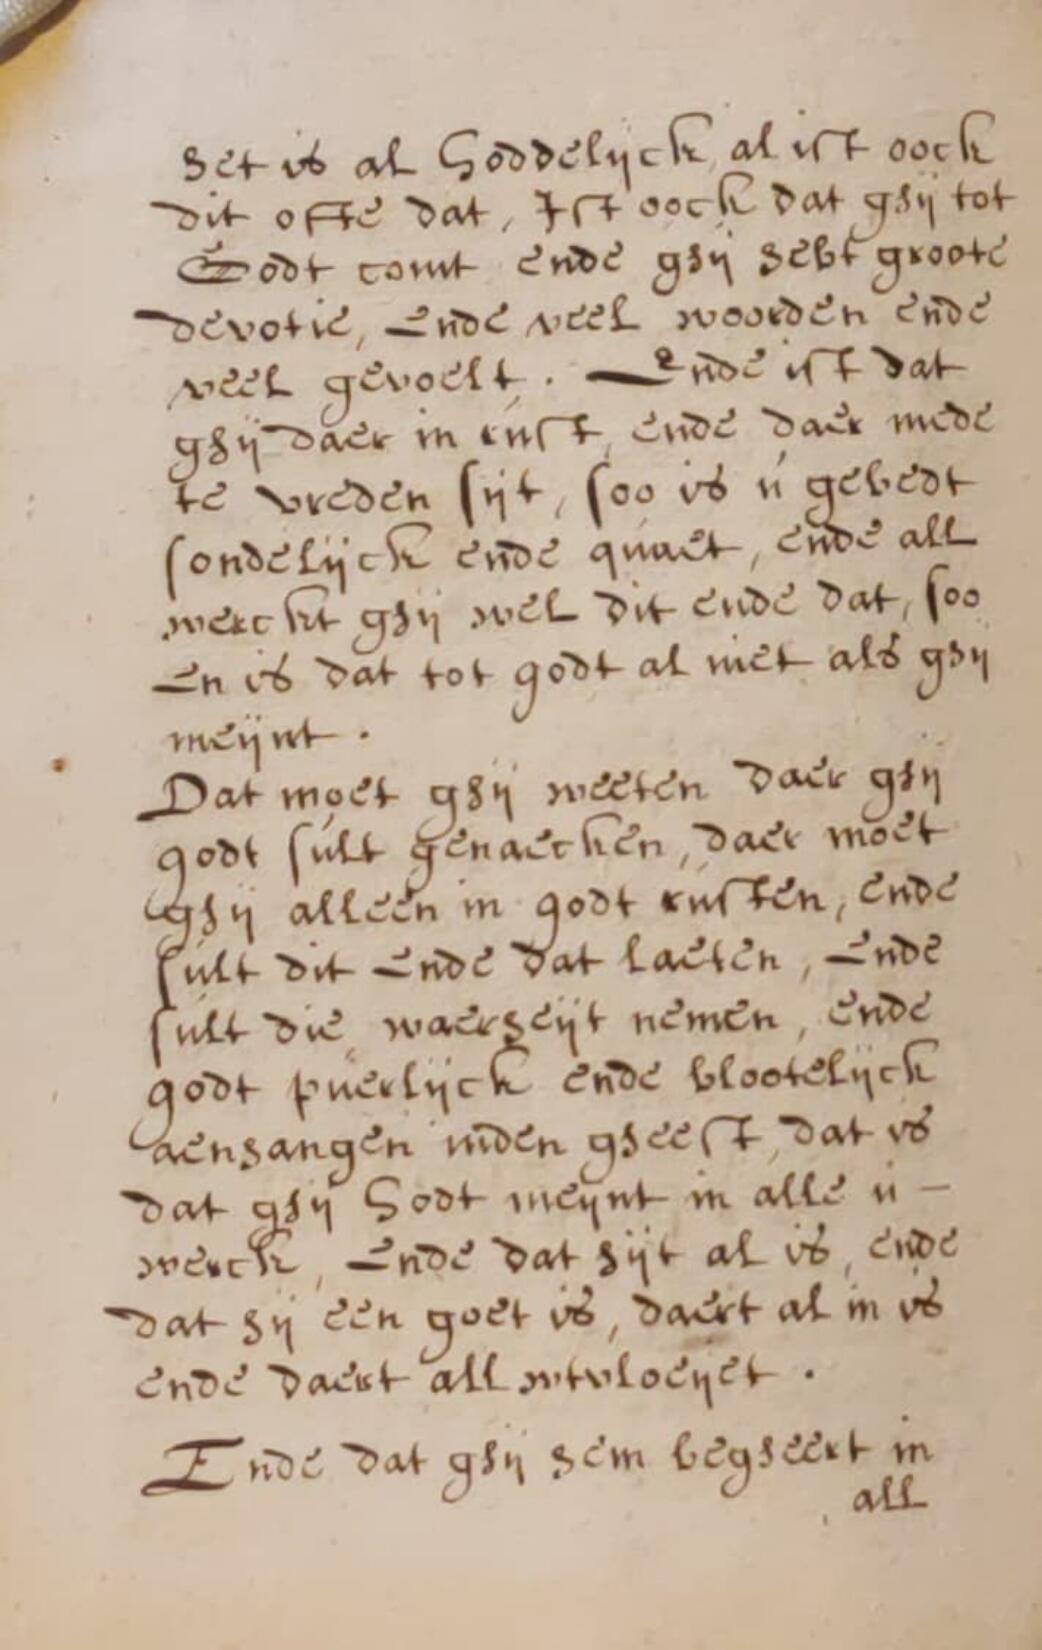 Het is al Goddelijck, al ist oock
dit ofte dat, Ist oock dat ghij tot
Godt comt ende ghij hebt groote
devotie, Ende veel woorden ende
veel gevoelt. Ende ist dat
ghij daer in rust, ende daer mede
te vreden sijt, soo is ú gebedt
sondelijck ende quaet, ende all
werckt ghij wel dit ende dat, soo
En is dat tot godt al niet als ghij
meijnt.
Dat moet ghij weeten daer ghij
godt sult genaecken, daer moet
ghij alleen in godt rusten, ende
sult dit Ende dat laeten, Ende
sult die waerheijt nemen, ende
godt puerlijck ende blootelijck
aenhangen inden gheest, dat is
dat ghij Godt meijnt in alle ú -
werck, Ende dat hijt al is, ende
dat hij een goet is, daert al in is
ende daert all wtvloeijet.
Ende dat ghij hem begheert in
all